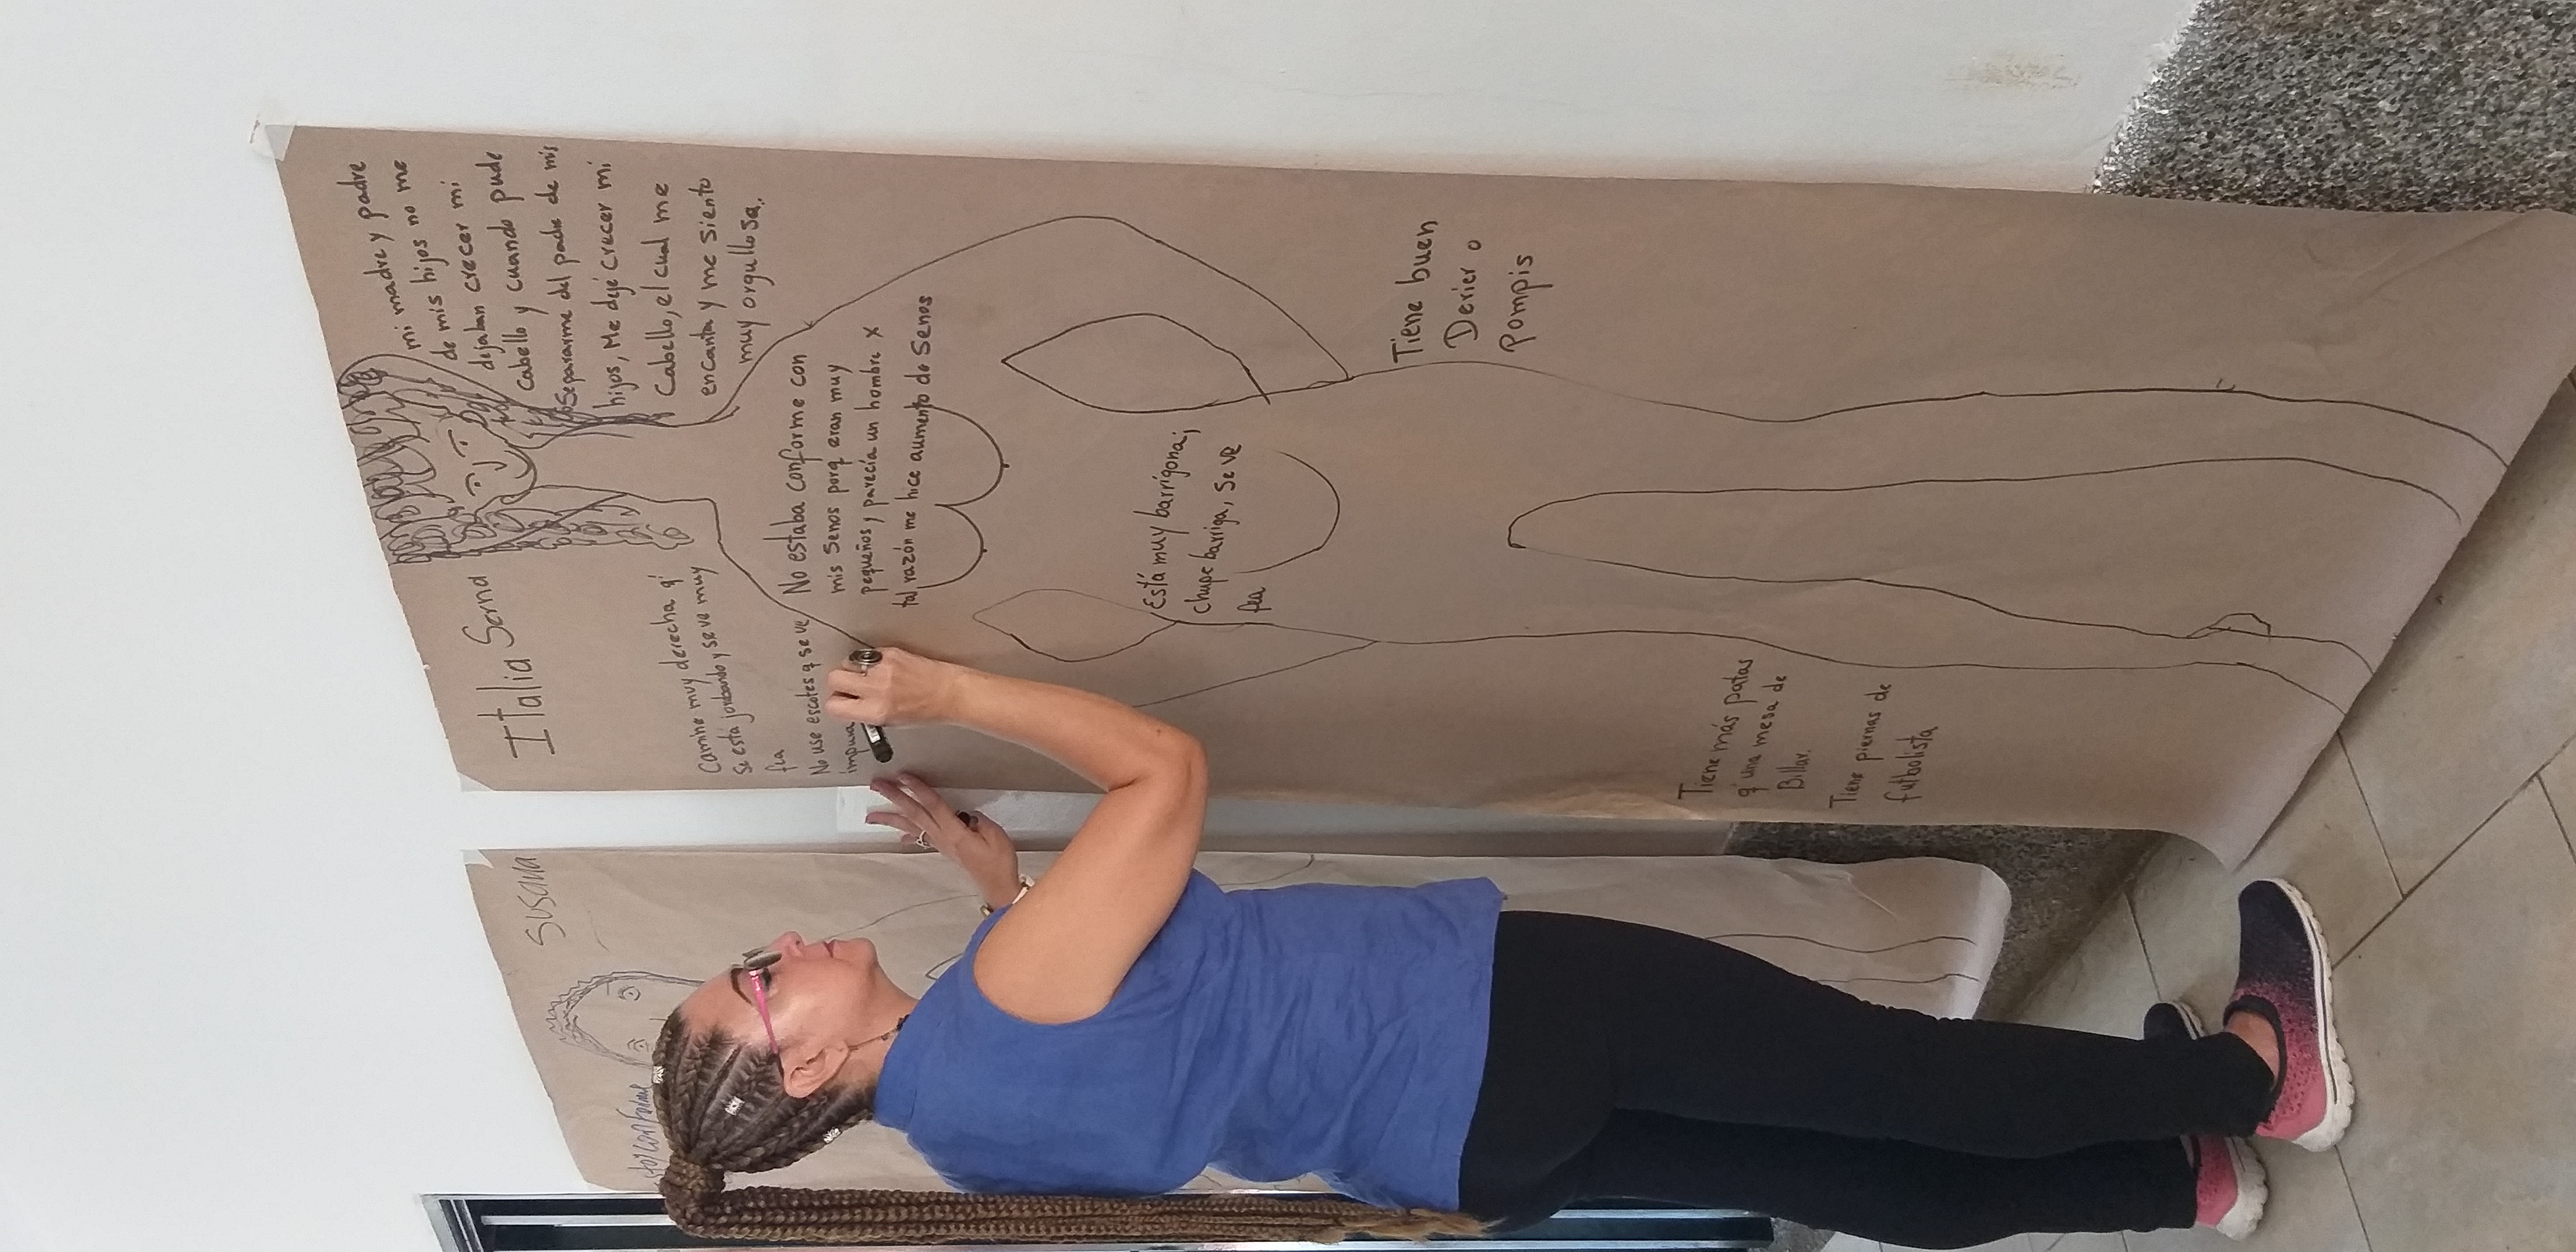 Italia Serna
mi madre y padre
de mis hijos no me
dejaban crecer mi
Cabello y cuando pude
Separarme del padre de mis
hijos, Me dejé crecer mi
Cabello, el cual me
encanta y me siento
muy orgullosa.
Camine muy derecha q'
Se está jorobando y se ve muy
fea
No use escotes q se ve
impura
No estaba conforme con
mis Senos porq eran muy
pequeños y parecía un hombre x
tal razón me hice aumento de Senos
Está muy barrigona;
chupe barriga, se ve
fea
Tiene buen
Derier o
Pompis
Tiene más patas
q' una mesa de
Billar.
Tiene piernas de
futbolista
Susana